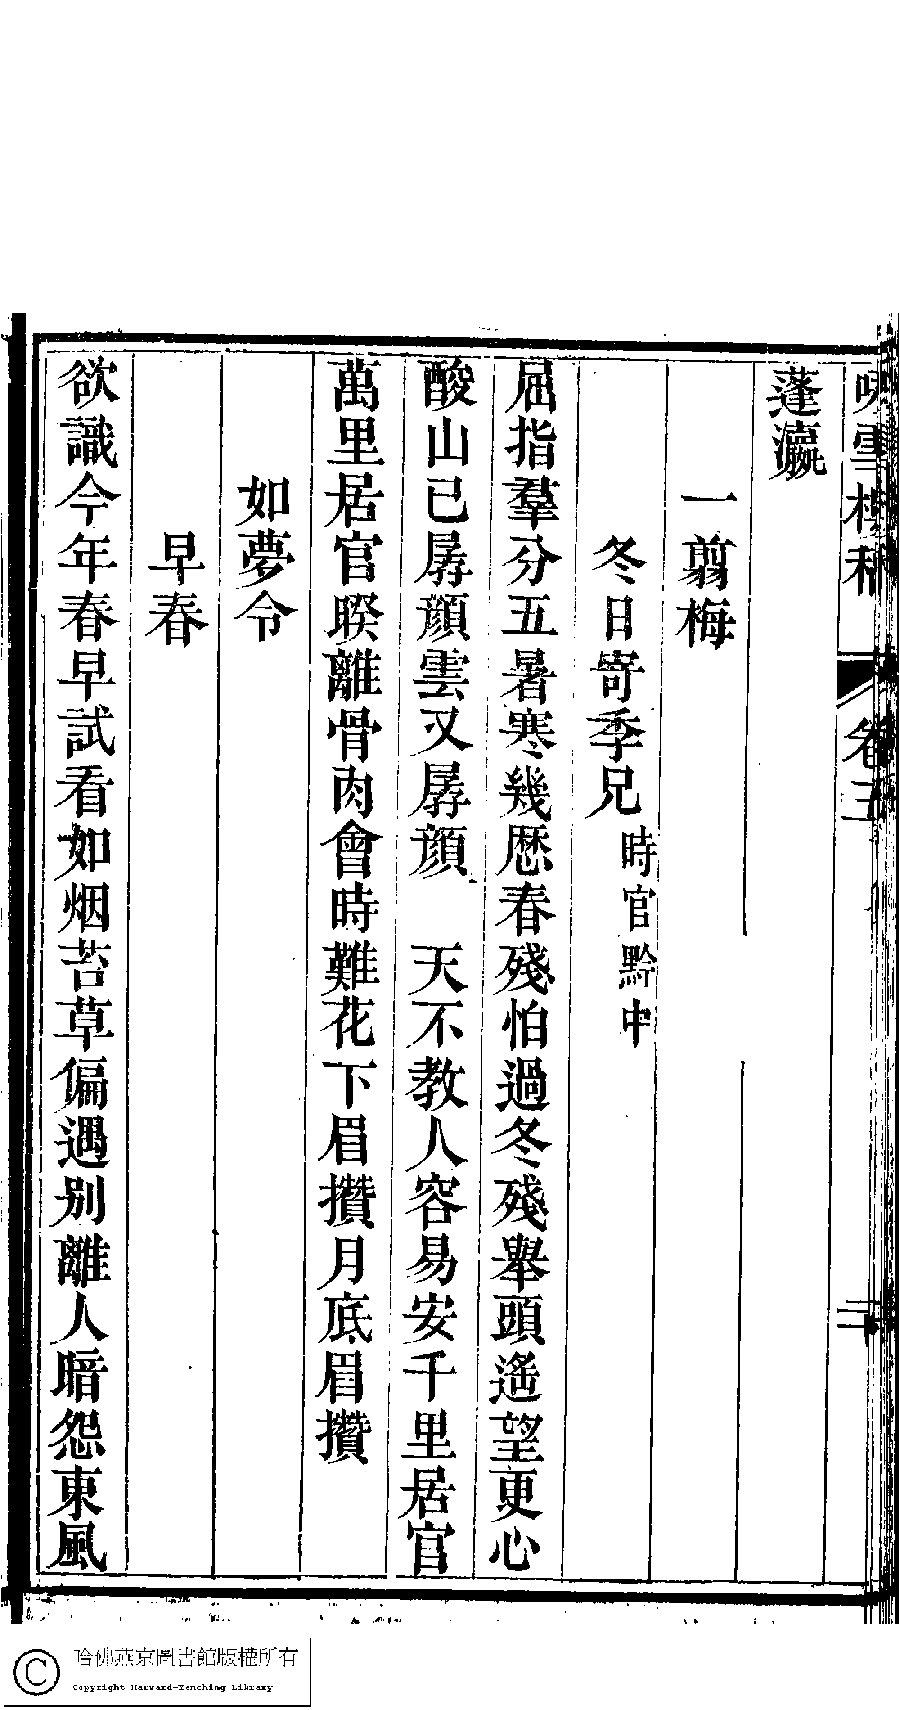 咏雪樓稿 卷五 二
蓬瀛
一翦梅
冬日寄季兄 時官黔中
屈指羣分五暑寒幾歴春殘怕過冬殘舉頭遙望更心
酸山已孱顏雲又孱顏 天不教人容易安千里居官
萬里居官睽離骨肉會時難花下眉攢月底眉攢
如夢令
早春
欲識今年春早試看如烟苔草偏遇别離人暗怨東風
哈佛燕京圖書館版權所有
Copyright Harvard-Yenching Library